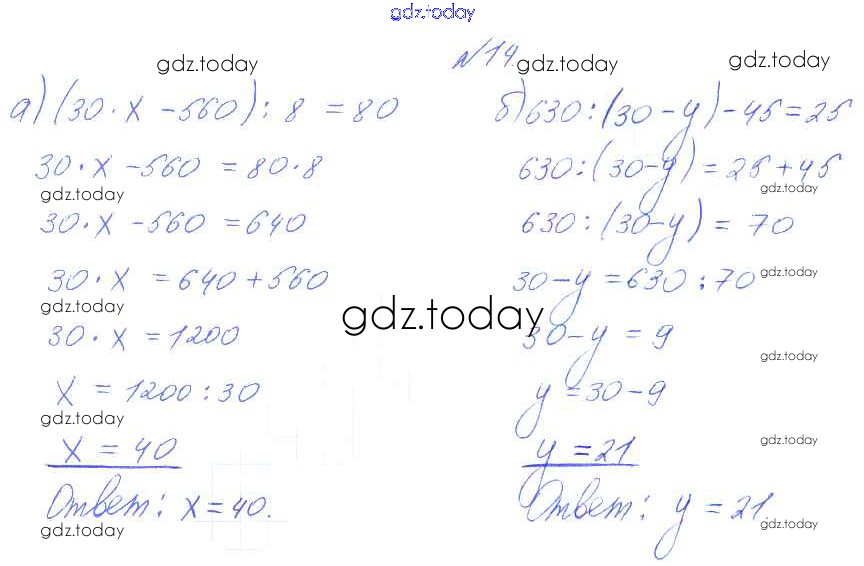 gdz.today
№14.
gdz.today gdz.today gdz.today
а) (30 · x - 560) : 8 = 80
30 · x - 560 = 80 · 8
gdz.today
30 · x - 560 = 640
30 · x = 640 + 560
gdz.today
30 · x = 1200
x = 1200 : 30
gdz.today
x = 40
Ответ: x = 40.
gdz.today
gdz.today
б) 630 : (30 - y) - 45 = 25
630 : (30 - y) = 25 + 45
gdz.today
630 : (30 - y) = 70
gdz.today
30 - y = 630 : 70
30 - y = 9
gdz.today
y = 30 - 9
gdz.today
y = 21
Ответ: y = 21.
gdz.today